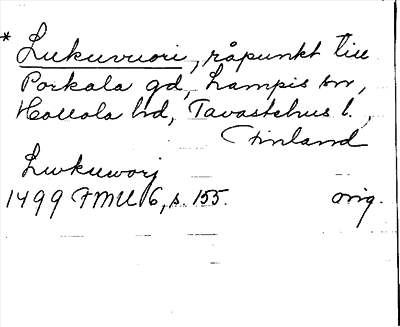 * Lukuvuori, råpunkt till
Porkala gd, Lampis sn,
Hollola hd, Tavastehus l.,
Finland
Lwkuworj
1499 FMU 6, s. 155. orig.